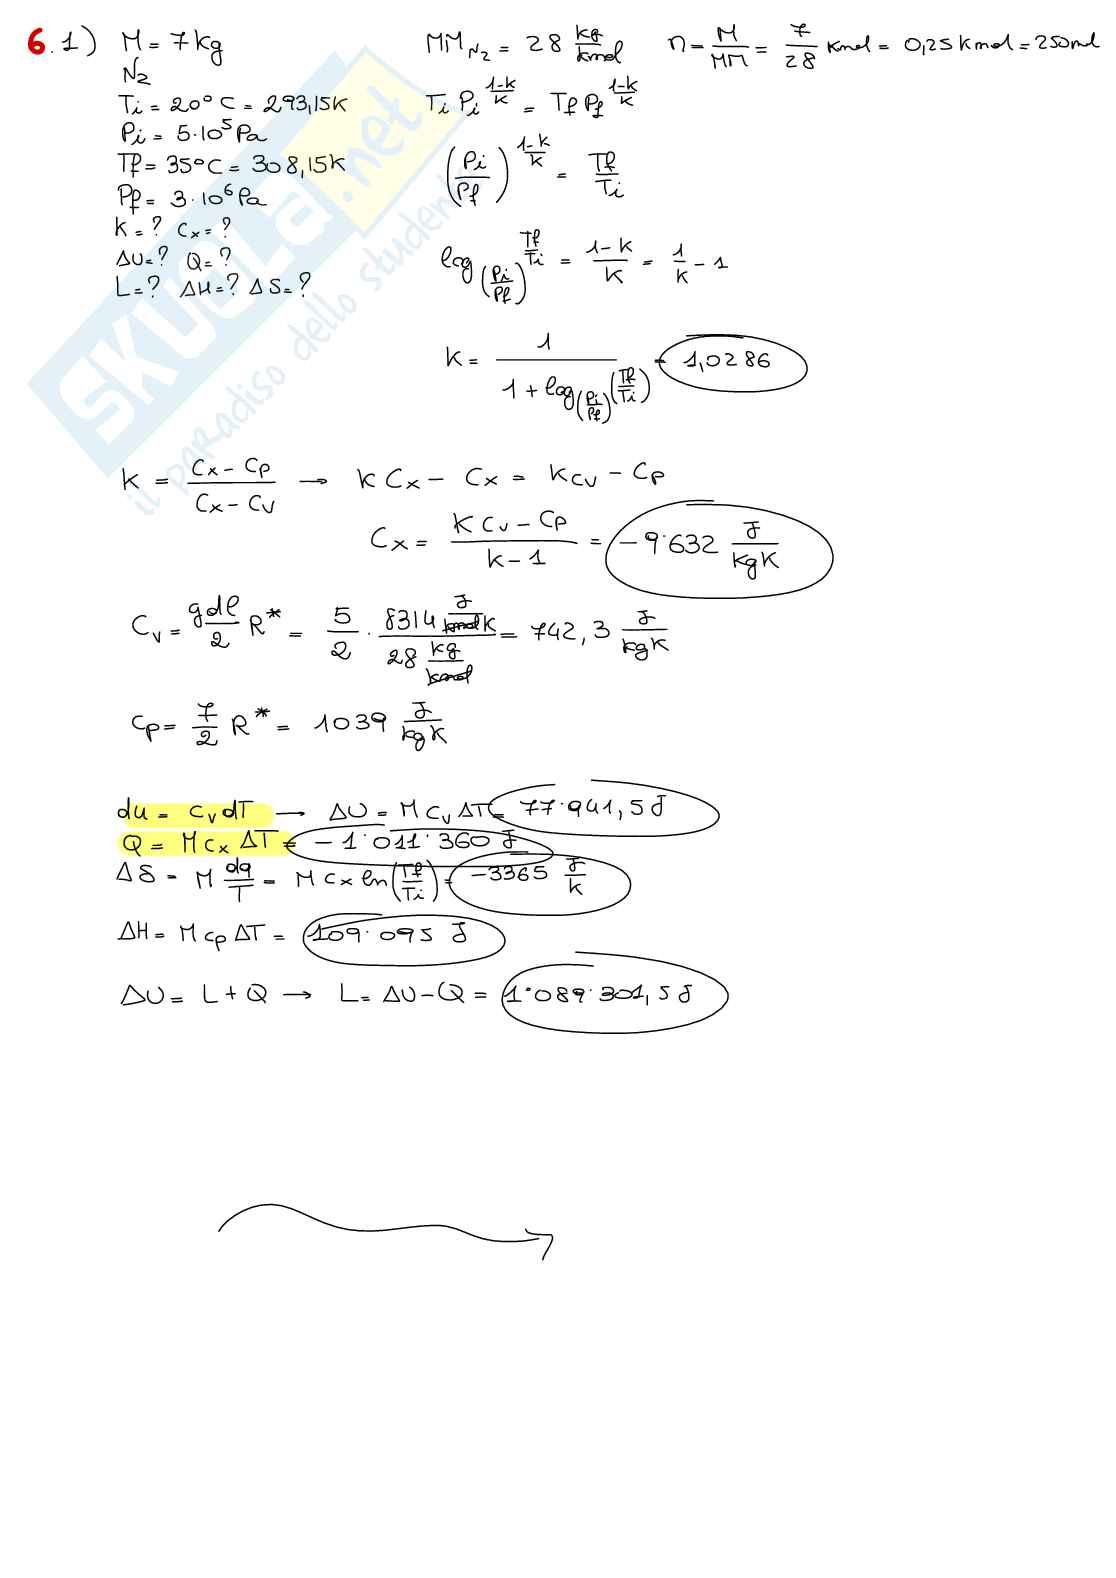 6.1) M = 7kg
N₂
Ti = 20°C = 293,15K
Pi = 5·10⁵Pa
Tf = 35°C = 308,15K
Pf = 3·10⁶Pa
K = ? Cx = ?
ΔU = ? Q = ?
L = ? ΔH = ? ΔS = ?
MM_N₂ = 28 kg/kmol n = M/MM = 7/28 kmol = 0,25 kmol = 250mol
Ti Pi^((1-K)/K) = Tf Pf^((1-K)/K)
(Pi/Pf)^((1-K)/K) = Tf/Ti
log_(Pi/Pf) Tf/Ti = (1-K)/K = 1/K - 1
K = 1/(1 + log_(Pi/Pf)(Tf/Ti)) = 1,0286
K = (Cx - Cp)/(Cx - Cv) → K Cx - Cx = K Cv - Cp
Cx = (K Cv - Cp)/(K - 1) = -9·632 J/kgK
Cv = gdl/2 R* = 5/2 · (8314 J/kmol K)/(28 kg/kmol) = 742,3 J/kgK
Cp = 7/2 R* = 1039 J/kgK
du = Cv dT → ΔU = M Cv ΔT = 77·941,5 J
Q = M Cx ΔT = -1·011·360 J
ΔS = M dq/T = M Cx ln(Tf/Ti) = -3365 J/K
ΔH = M Cp ΔT = 109·095 J
ΔU = L + Q → L = ΔU - Q = 1·089·301,5 J
SKUOLA.net
il paradiso dello studente